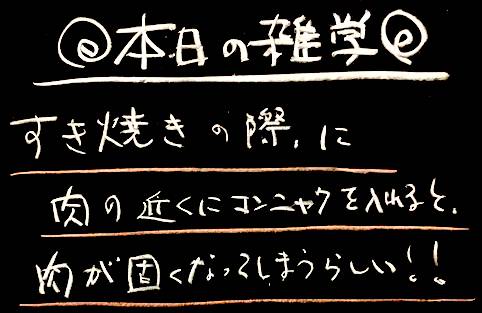 本日の雑学
すき焼きの際、に
肉の近くにコンニャクを入れると、
肉が固くなってしまうらしい!!